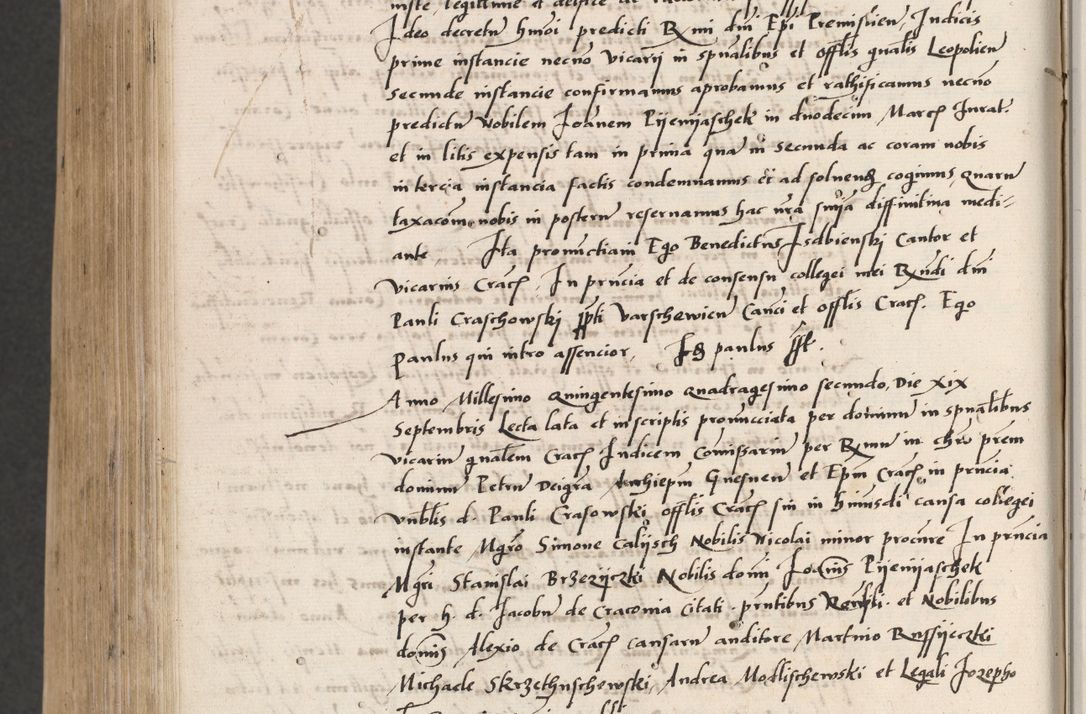 iuste legittime et
Ideo decretu hmoi predicti Rmi dni Epi Premislien, Iudicis
prime instancie necno vicarij in spualibus et offlis gnalis Leopolien
secunde instancie confirmamus aprobamus et rathificamus necno
predictu Nobilem Ioanem Pijenijaschek in duodecim Marcs Iurat
et in litis expensis tam in prima qua in secunda ac coram nobis
in tercia instancia factis condemnamus et ad soluend cogimus, quaru
taxacom nobis in posteru reseruamus hac nra snia diffinitiua medi-
ante, Ita pronuctiaui Ego Benedictus Isdbienski Cantor et
vicarius Crac, In pruncia et de consensu collegei mei Rndi dni
Pauli Craschowski ppti varschewien Canci et offlis Crac. Ego
Paulus qui intro assencior, Id paulus sst.
Anno Millesimo quingentesimo quadragesimo secundo, Die xix
Septembris Lecta lata et in scriptis pronuncciata per dominum in spualibus
vicarium gnalem Crac Iudicem Comissarium per Rmum in chro prem
dominum Petru Deigra Archiepm Gnesnen et Epm Crac in pruncia
vnblis d. Pauli Crasowski offlis Crac sui in hmusdi causa collegei
instante Mgro Simone Calijsch Nobilis Nicolai minor procure In pruncia
Mgri Stanislai Brzezijczki Nobilis domi Joannis Pijenijaschek
per h. d. Jacobu de Craconia citati. pntibus et Nobilibus
domis Alexio de Crac causaru auditore Martino Russijeczki
Michaele Skrzethuschowski, Andrea Modlischewski et Legali Jozepho